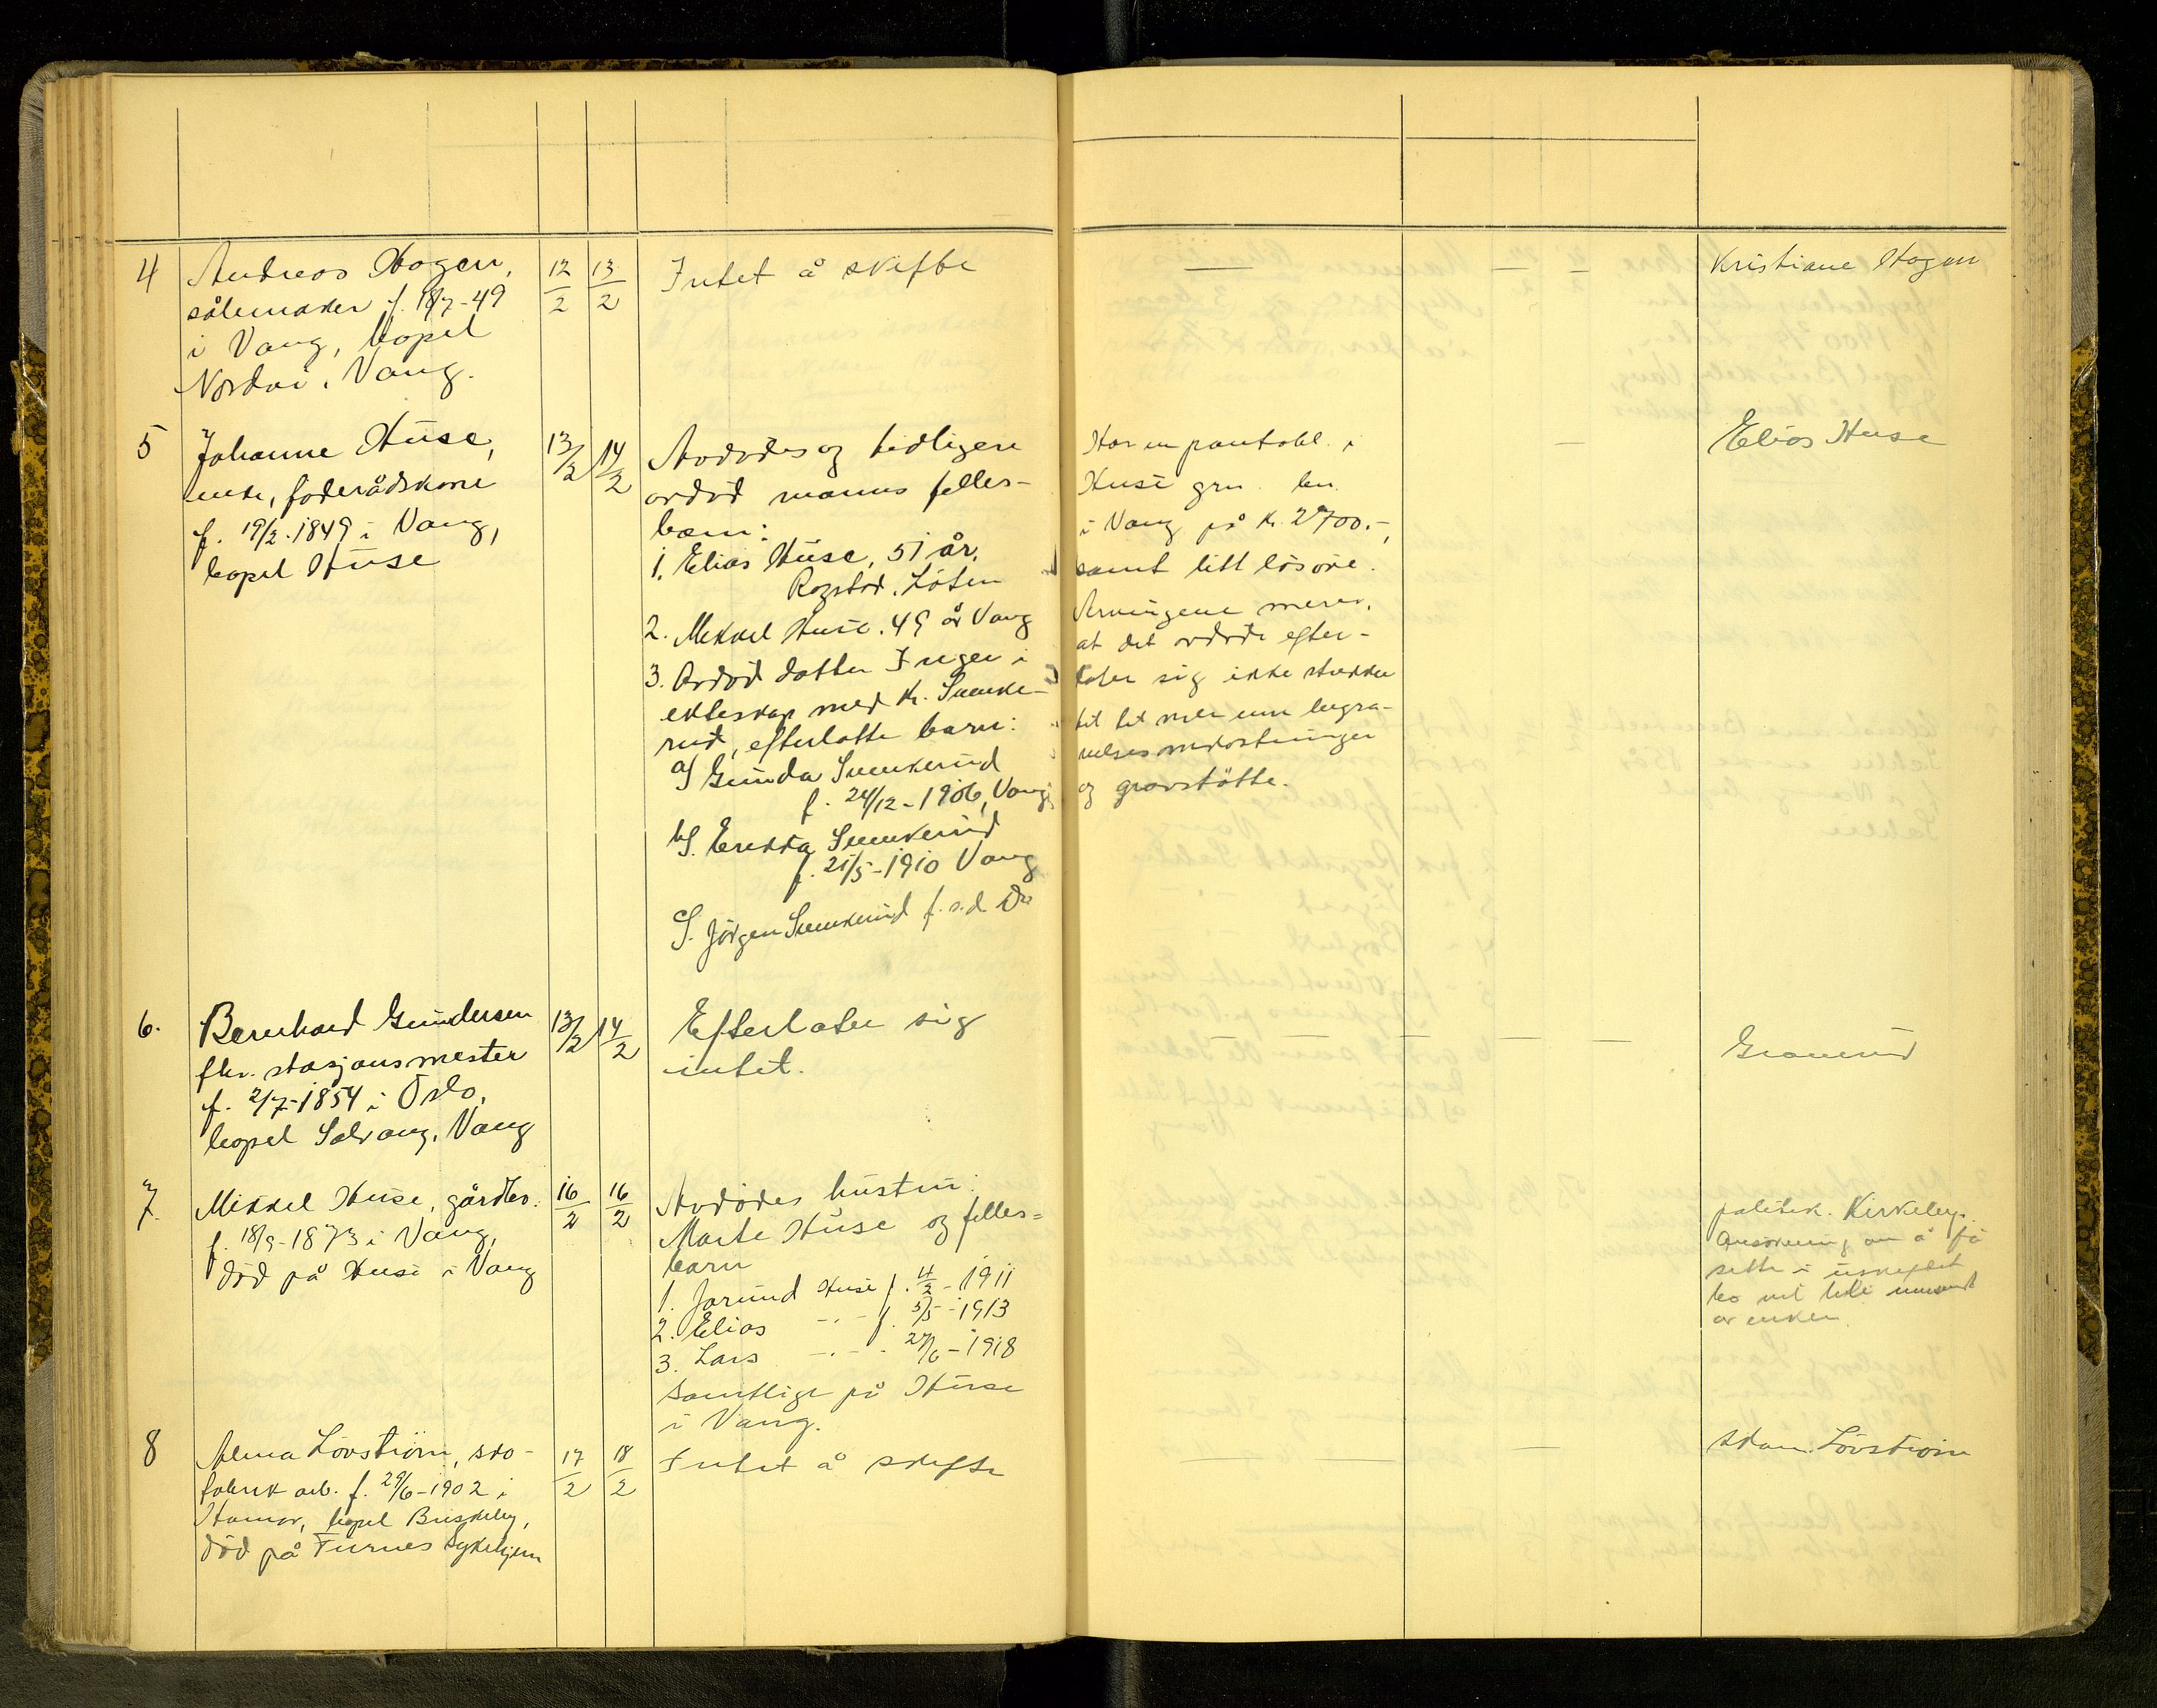 4
Andreas Hagen,
sålemaker f. 18/7-49
i Vang, bopel
Nordvi, Vang.
12/2
13/2
Intet å skifte
—
Kristiane Hagen
5
Johanne Huse,
enke, føderådskone
f. 19/2-1849 i Vang,
bopel Huse
13/2
14/2
Avdødes og tidligere
avdød manns felles-
barn:
1. Elias Huse, 51 år,
Rogstad, Löten
2. Mikkel Huse. 49 år Vang
3. Avdød datter Inger i
ekteskap med Kr. Svenke-
rud, efterlatte barn:
a) Gunda Svenkerud
f. 24/12-1906, Vang
b). Erikka Svenkerud
f. 21/5-1910 Vang
c). Jörgen Svenkerud f. s.d. Do
Har en pantobl. i
Huse grn. bn.
i Vang på kr. 2700.-,
samt litt lösöre.
Arvingene mener,
at det avdöde efter-
later sig ikke strekker
til til mer enn begra-
velsesomkostninger
og gravstötte.
—
Elias Huse
6.
Bernhard Gundersen
fhv. stasjonsmester
f. 2/7-1854 i Oslo,
bopel Solvang, Vang
13/2
14/2
Efterlater sig
intet.
— — — —
7.
Mikkel Huse, gårdbr.
f. 18/9-1873 i Vang,
död på Huse i Vang
16/2
16/2
Avdödes hustru:
Marte Huse og felles=
barn
1. Jorund Huse f. 4/2-1911
2. Elias -"- f. 5/5-1913
3. Lars -"- 27/6-1918
Samtlige på Huse
i Vang.
politik. Kirkeby.
Ansökning om å få
sitte i uskiftet
bo vil bli
av enken.
8
Alma Lövström, sko-
fabrik arb. f. 29/6-1902 i
Hamar, bopel Briskeby,
död på Furnes Sykehjem
17/2
18/2
Intet å skifte
— —
Adam Lövström